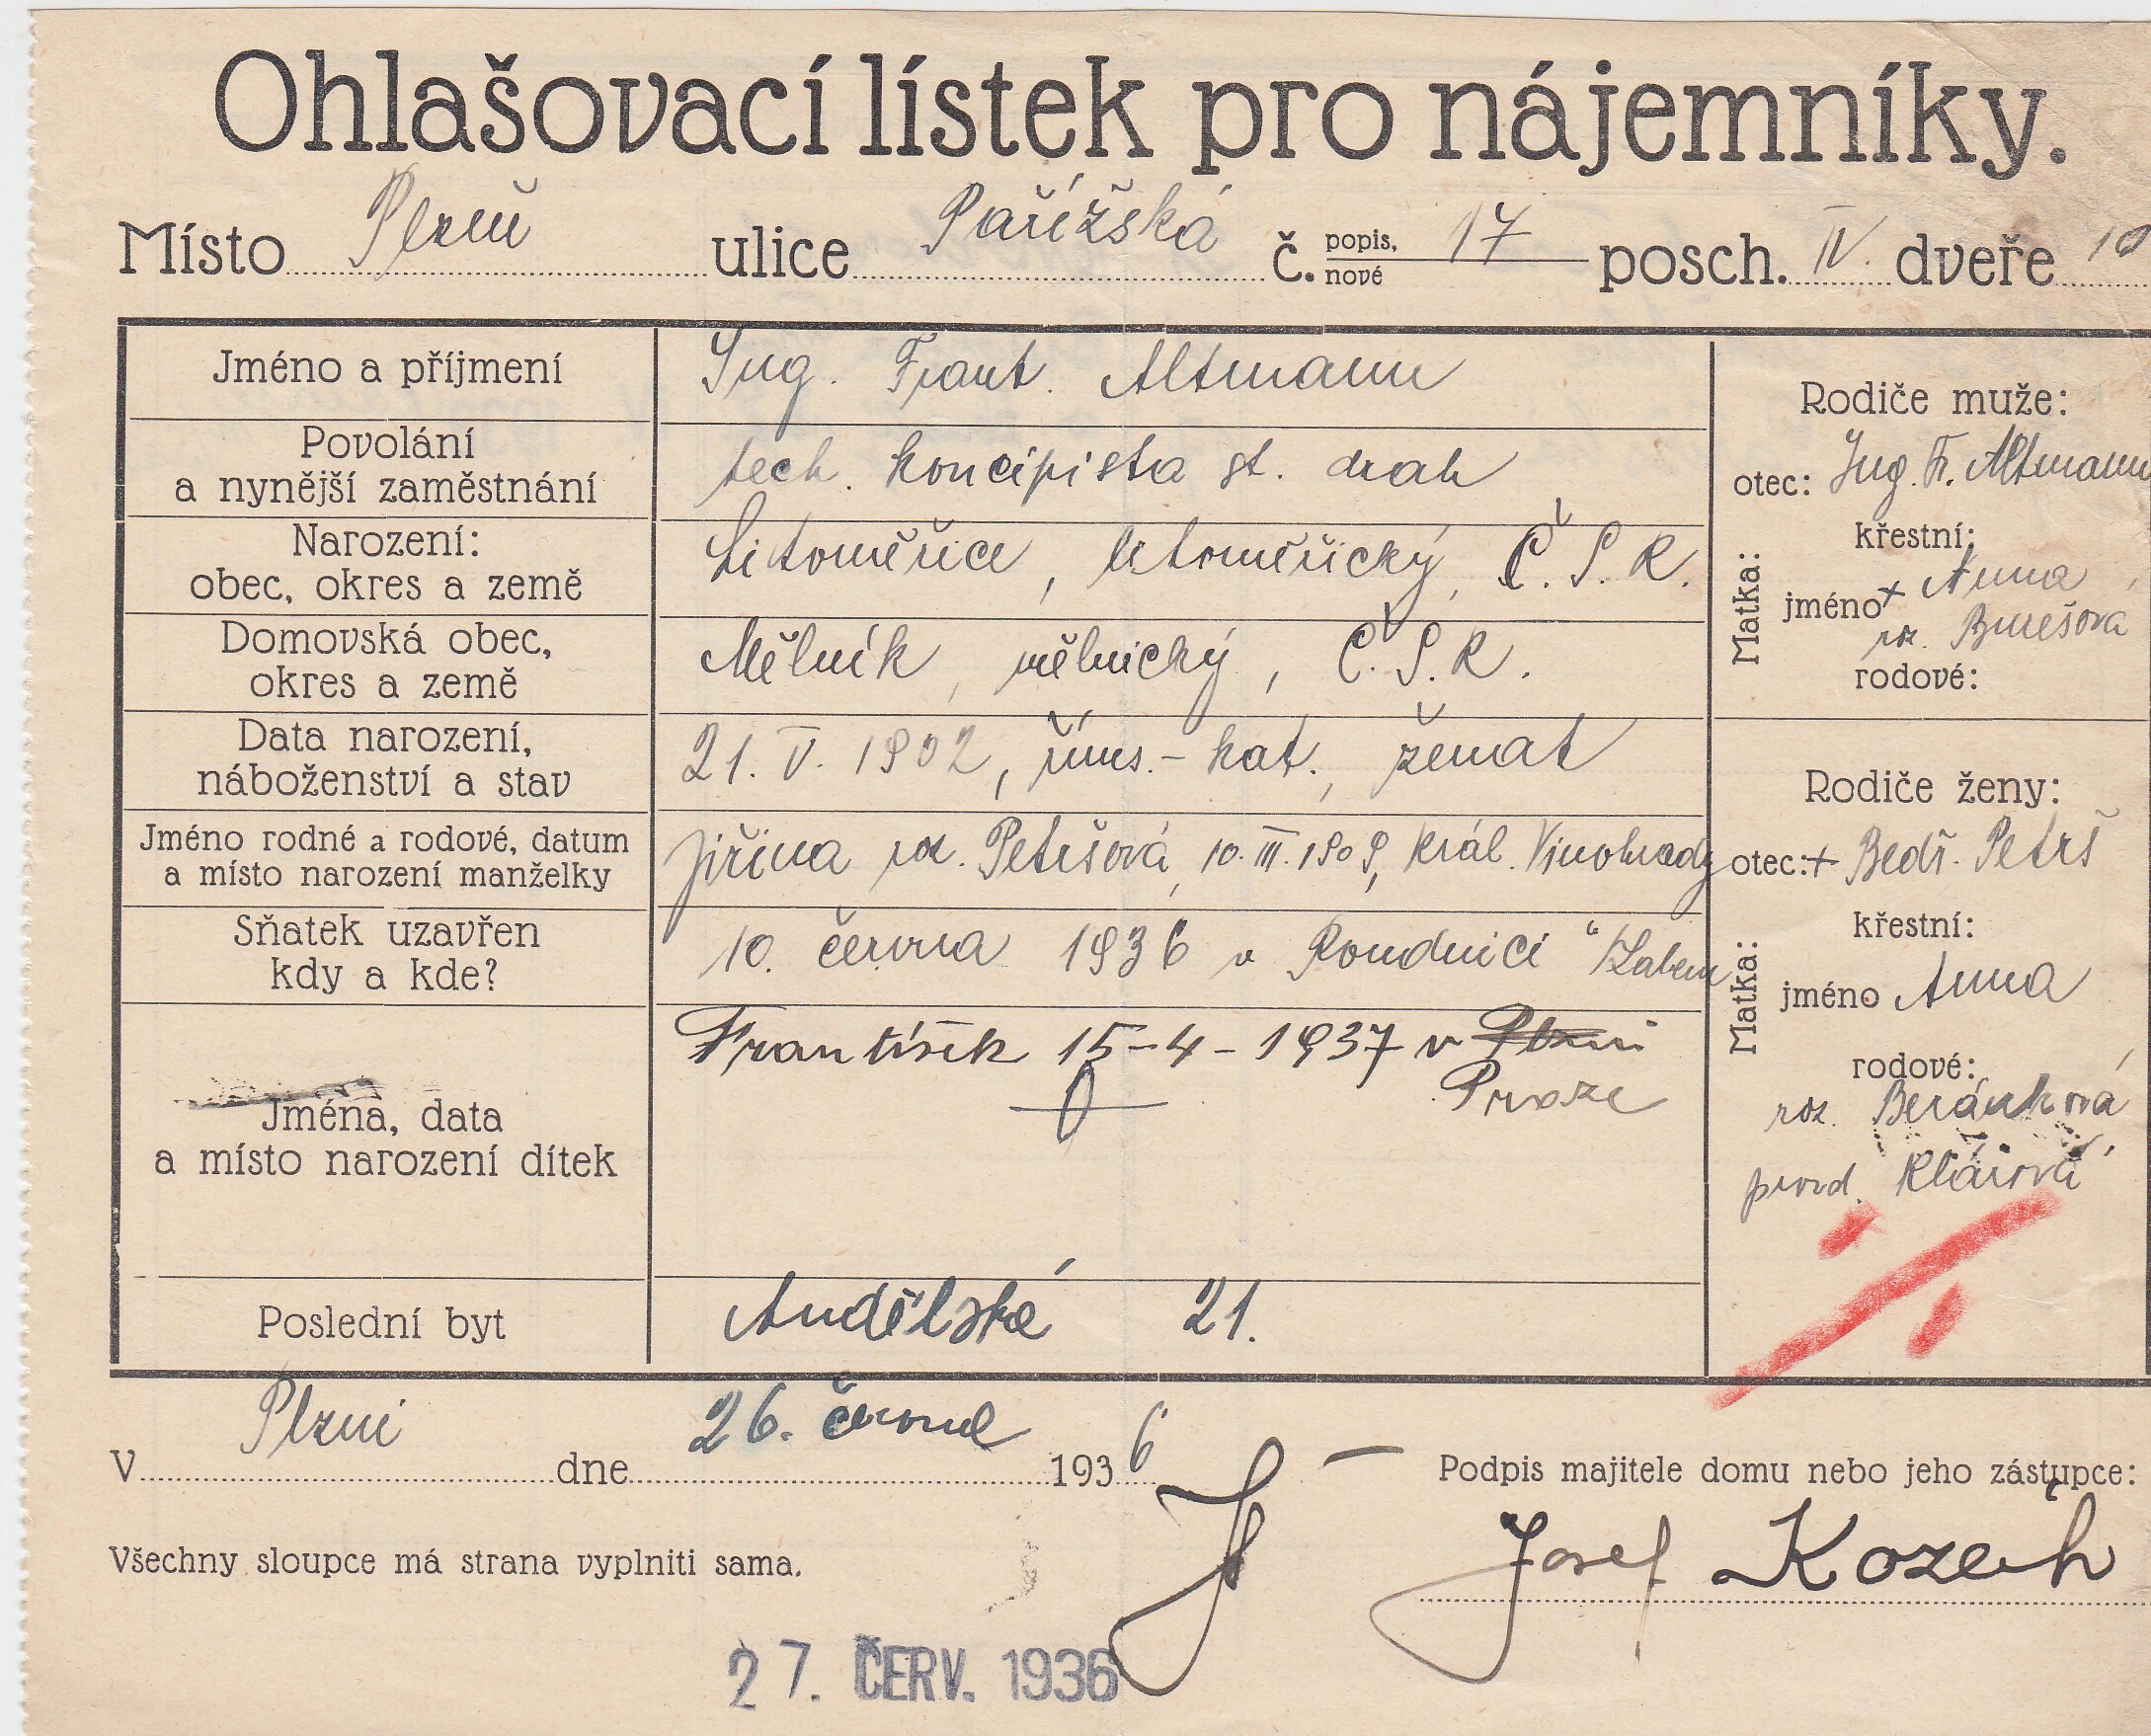 Ohlašovací lístek pro nájemníky.
Místo Plzeň ulice Pařížská č. popis. nové 17 posch. IV. dveře 10
Jméno a příjmení
Ing. Frant. Altmann
Povolání
a nynější zaměstnání
tech. koncipista st. drah
Narození:
obec, okres a země
Litoměřice, litoměřický, Č.S.R.
Domovská obec,
okres a země
Mělník, mělnický, Č.S.R.
Data narození,
náboženství a stav
21. V. 1902, říms.-kat., ženat
Jméno rodné a rodové, datum
a místo narození manželky
Jiřina roz. Petršová, 10. III. 1909, Král. Vinohrady
Sňatek uzavřen
kdy a kde?
10. června 1936 v Roudnici n/Labem
Jména, data
a místo narození dítek
František 15-4-1937 v Plzni
Praze
Poslední byt
Andělská 21.
Rodiče muže:
otec: Ing. Fr. Altmann
Matka:
křestní:
jméno + Anna
roz. Burešová
rodové:
Rodiče ženy:
otec: + Bedř. Petrš
Matka:
křestní:
jméno Anna
rodové:
roz. Beránková
provd. Klárová
V Plzni dne 26. června 1936
Podpis majitele domu nebo jeho zástupce:
Josef
Všechny sloupce má strana vyplniti sama.
27. ČERV. 1936